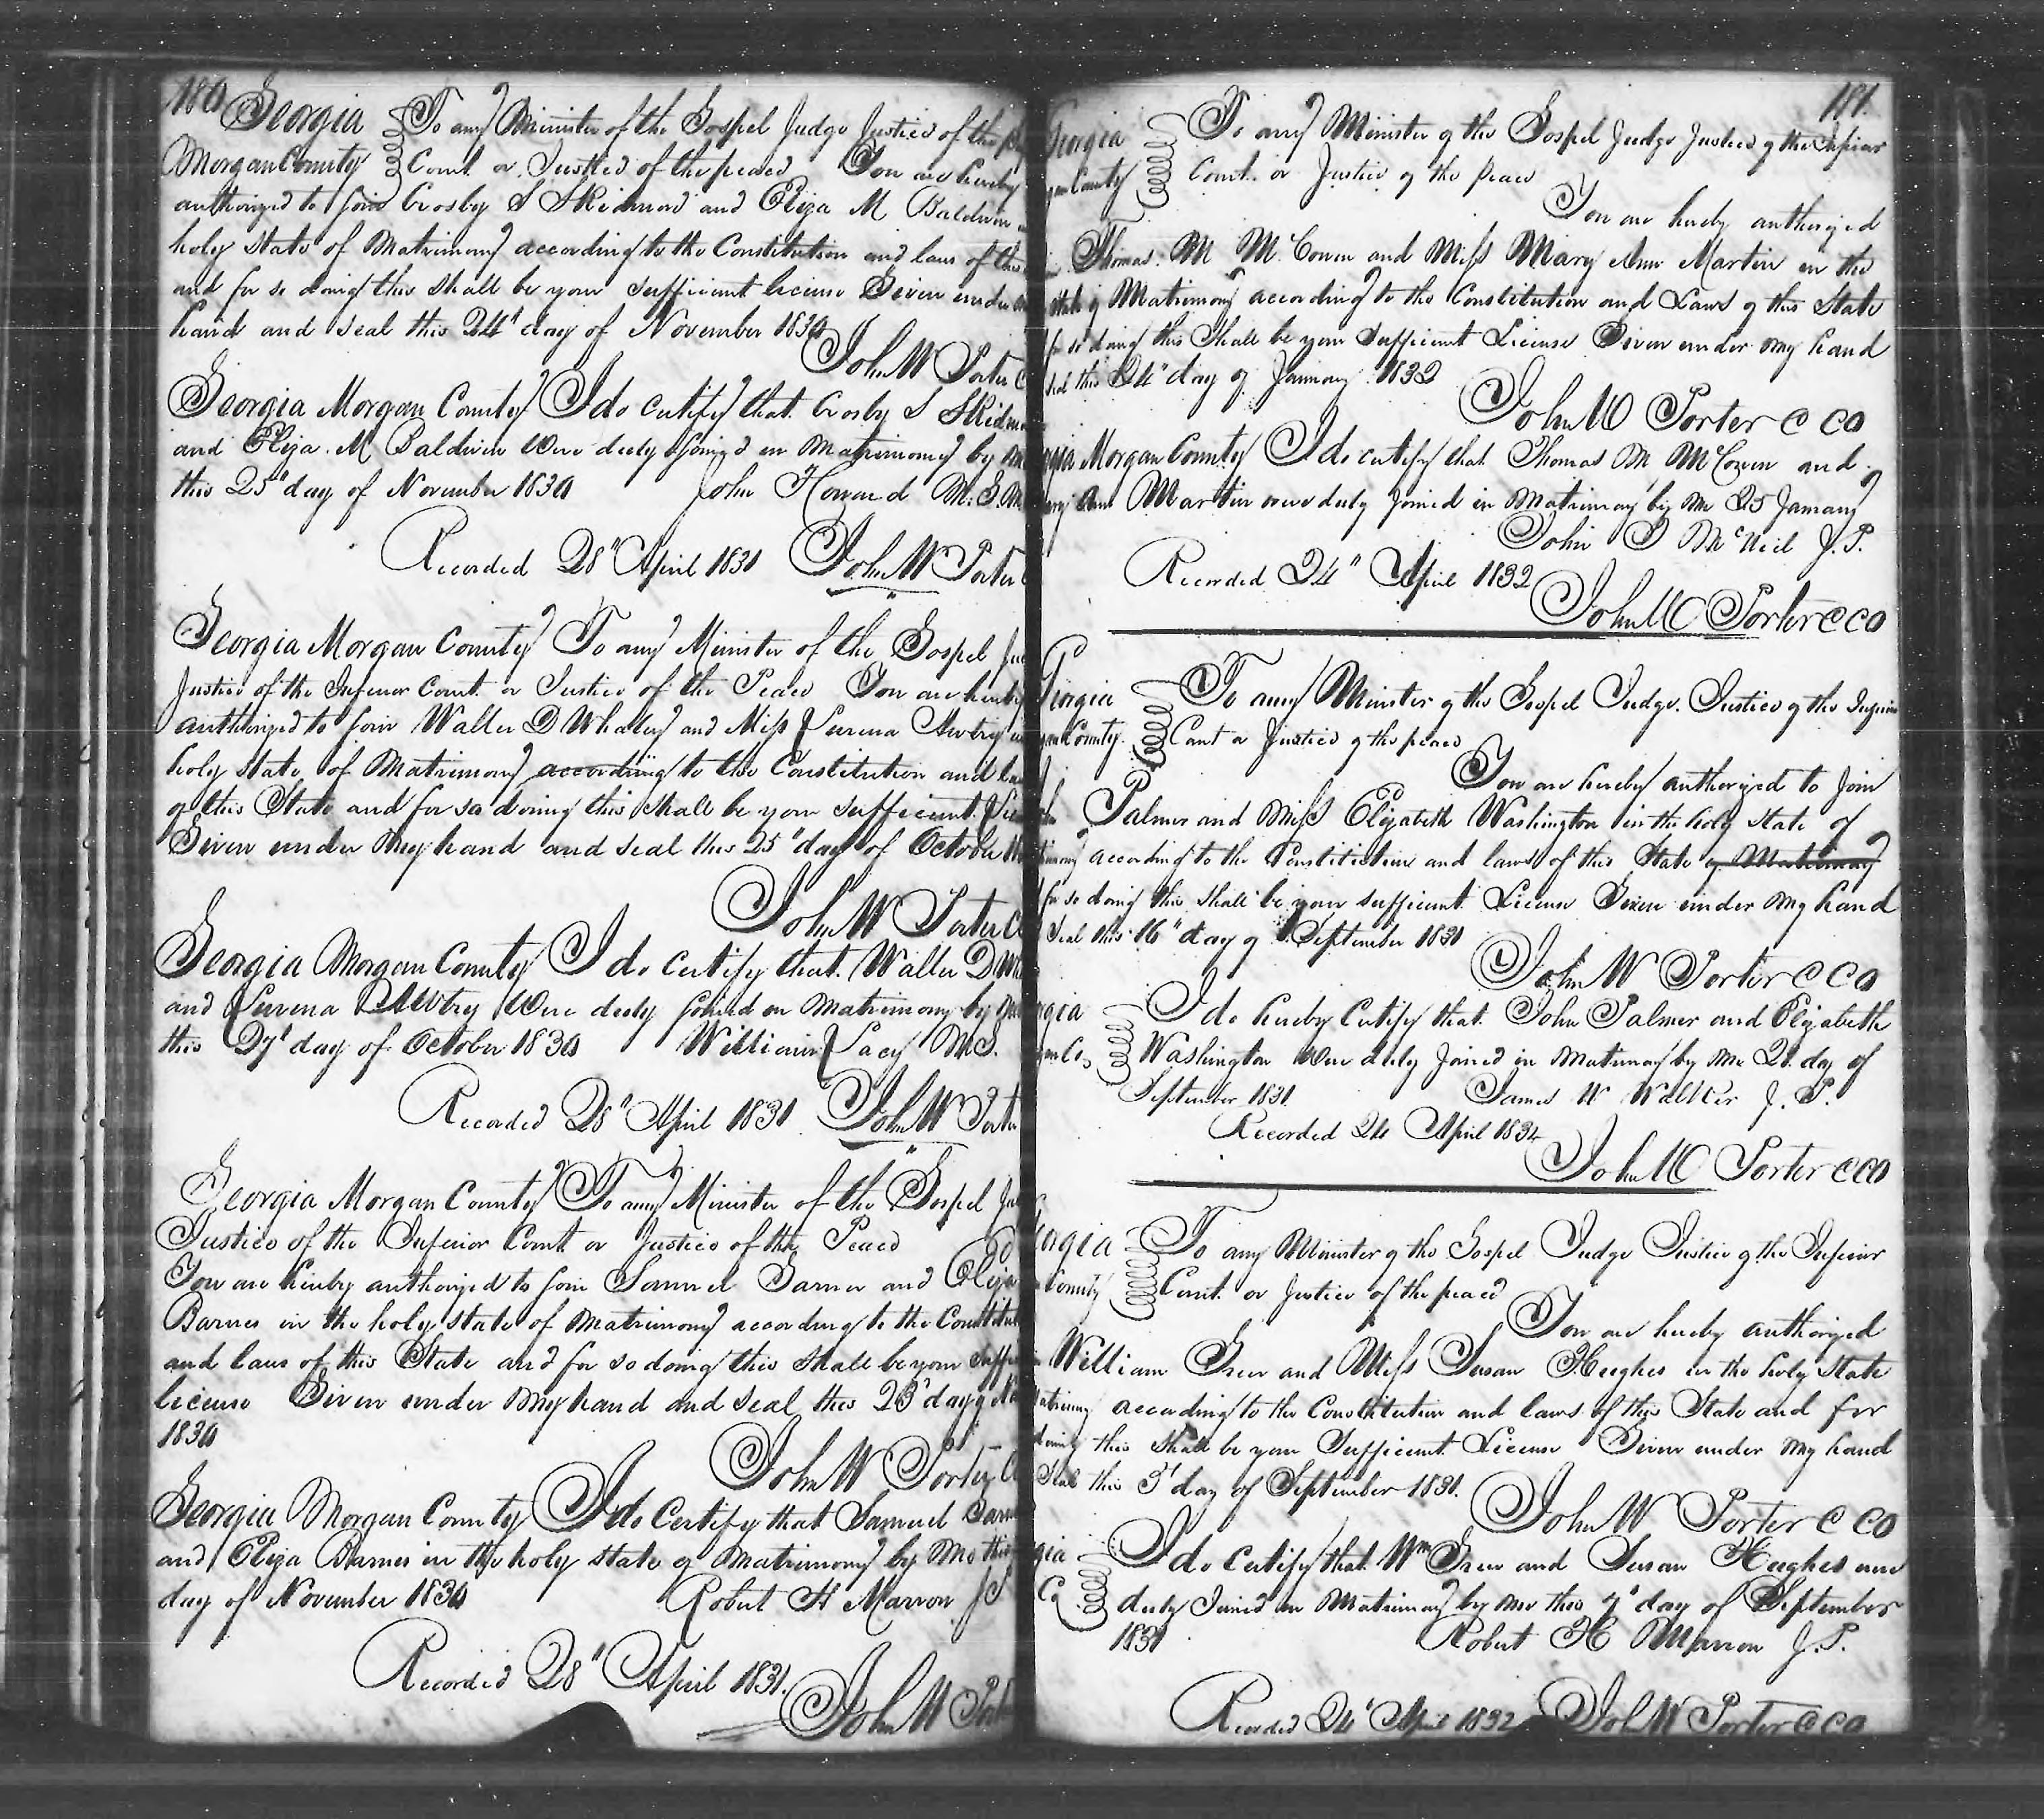 180
Georgia To any Minister of the Gospel Judge Justice of the
Morgan County Court or Justice of the peace You are hereby
authorized to join Crosby S Skidmore and Eliza M Baldwin
holy state of Matrimony according to the Constitution and laws of this
and for so doing this shall be your sufficient license Given under
hand and seal this 24th day of November 1830
John W Porter C
Georgia Morgan County I do certify that Crosby S Skidm
and Eliza M Baldwin were duly joined in Matrimony by me
this 25th day of November 1830 John Howard M.G.
Recorded 28" April 1831 John W Porter
Georgia Morgan County To any Minister of the Gospel Ju
Justice of the Inferior Court or Justice of the Peace You are hereby
authorized to join Walter D Whaley and Miss Lurena Awtry
holy state of Matrimony according to the Constitution and la
of this State and for so doing this shall be your sufficient Lic
Given under my hand and seal this 25" day of October
John W Porter C
Georgia Morgan County I do certify that Walter D Wh
and Lurena Awtry were duly joined on matrimony by me
this 27th day of October 1830 William Lacy M.G.
Recorded 28" April 1831 John W Porter
Georgia Morgan County To any Minister of the Gospel Ju
Justice of the Inferior Court or Justice of the Peace
You are hereby authorized to join Samuel Garner and Eliza
Barnes in the holy state of Matrimony according to the Constitut
and laws of this State and for so doing this shall be your suffi
license Given under my hand and seal this 23d day of No
1830
John W Porter C
Georgia Morgan County I do Certify that Samuel Garn
and Eliza Barnes in the holy state of Matrimony by Me this
day of November 1830 Robert H Marron JP
Recorded 28" April 1831.
John W Port
181.
Georgia To any Minister of the Gospel Judge Justice of the Inferior
gan County Court or Justice of the peace
You are hereby authorized
Thomas M McCowen and Miss Mary Ann Martin in the
state of Matrimony according to the Constitution and Laws of this State
for so doing this Shall be your Sufficient License Given under my hand
seal this 24" day of January 1832
John W Porter C CO
gia Morgan County I do certify that Thomas M McCowen and
ary Ann Martin were duly joined in Matrimony by me 25 January
John McNeil J.P.
Recorded 24" April 1832
John W Porter C CO
Georgia To any Minister of the Gospel Judge. Justice of the Inferior
gan County. Court or Justice of the peace
You are hereby authorized to join
Palmer and Miss Elizabeth Washington in the holy state of
timony according to the Constitution and laws of this State of Matrimony
for so doing this shall be your sufficient License Given under my hand
Seal this 16" day of September 1831
John W Porter C CO
rgia I do hereby Certify that John Palmer and Elizabeth
gan Co Washington were duly Joined in Matrimony by me 21. day of
September 1831. James W Walker J.P.
Recorded 24 April 1832
John W Porter C CO
orgia To any Minister of the Gospel Judge Justice of the Inferior
County Court or Justice of the peace
You are hereby authorized
William Green and Miss Susan Hughes in the holy State
atrimony according to the Constitution and laws of this State and for
doing this shall be your Sufficient License Given under my hand
Seal this 3d day of September 1831.
John W Porter C CO
gia I do Certify that Wm Green and Susan Hughes were
Co duly Joined in Matrimony by me this day of September
1831 Robert H Marron J.P.
Recorded 24" April 1832 John W Porter C CO